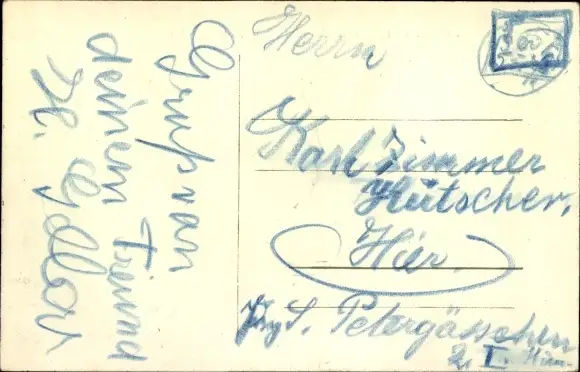 Gruß von
deinem
Freund
H.
Herrn
Karl Zimmer
Kutscher.
Hier.
S. Petergässchen
2. I.